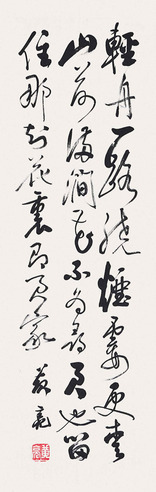 輕舟一路繞煙霞更愛
山前滿澗花不為尋君也留
住那知花裏即君家